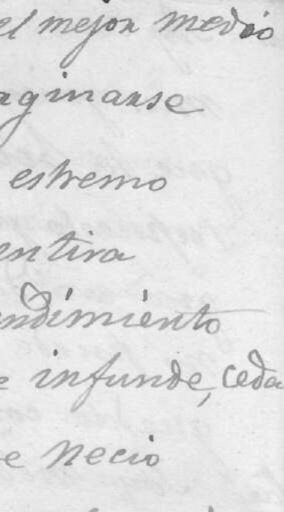 el mejor medio
aginarse
estremo
entira
endimiento
e infunde, ceda
e necio